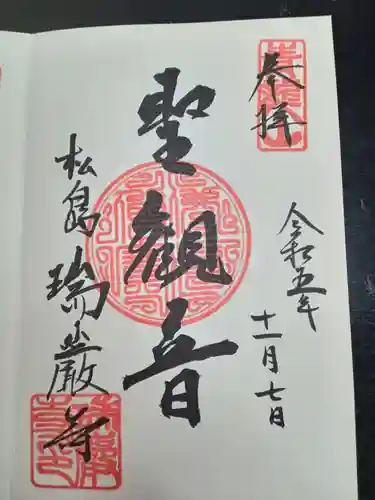 奉拝
令和五年
十一月七日
聖觀音
松島 瑞巌寺